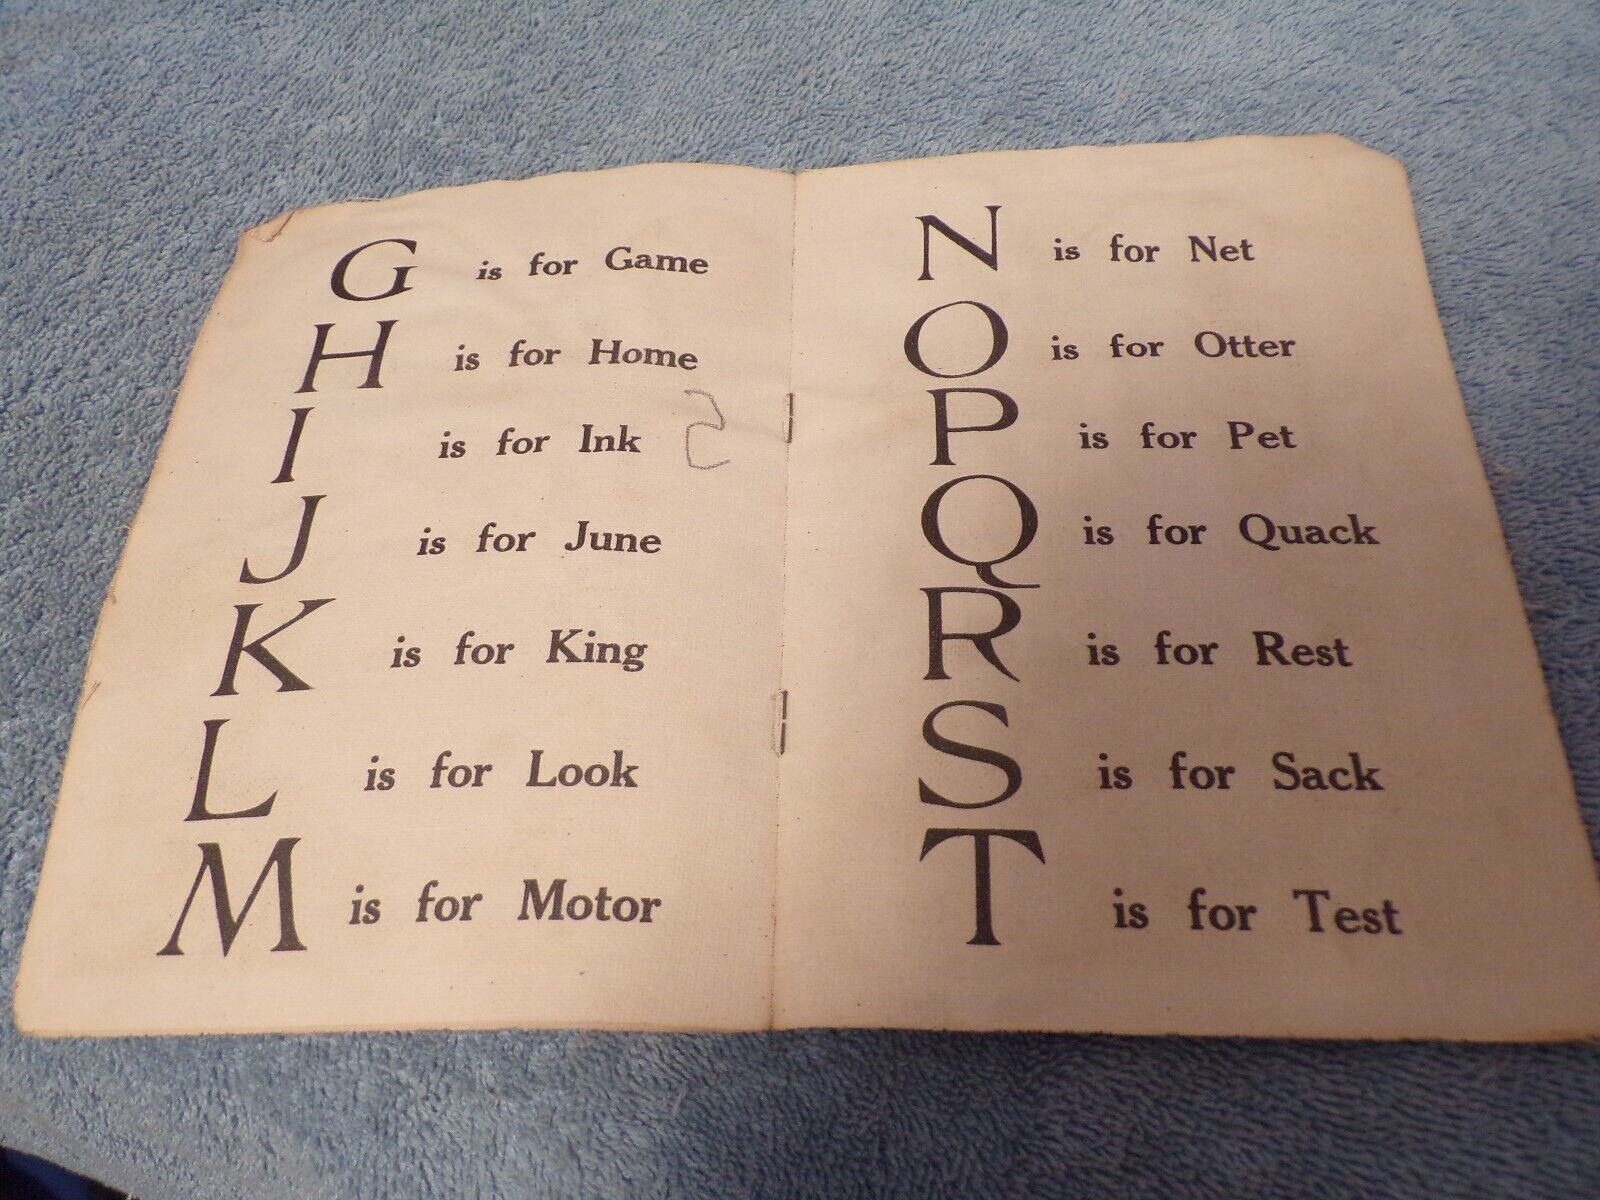 G is for Game
H is for Home
I is for Ink
J is for June
K is for King
L is for Look
M is for Motor
N is for Net
O is for Otter
P is for Pet
Q is for Quack
R is for Rest
S is for Sack
T is for Test